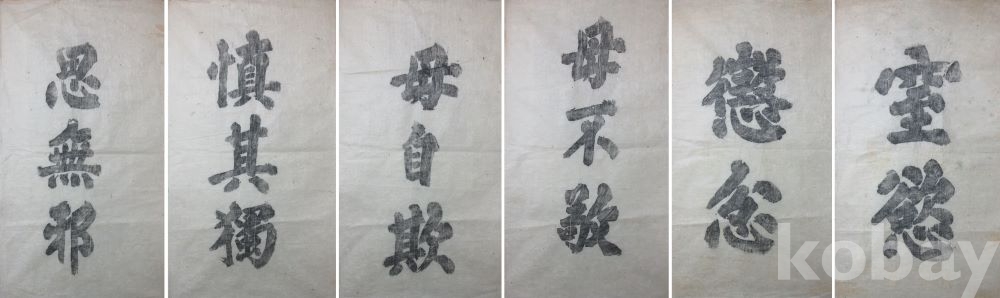 思無邪
慎其獨
毋自欺
毋不敬
懲忿
窒慾
kobay